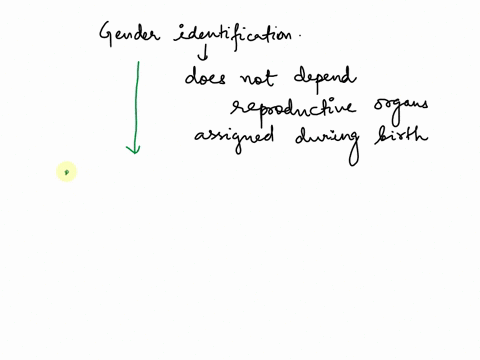 Gender identification.
does not depend
reproductive organs
assigned during birth